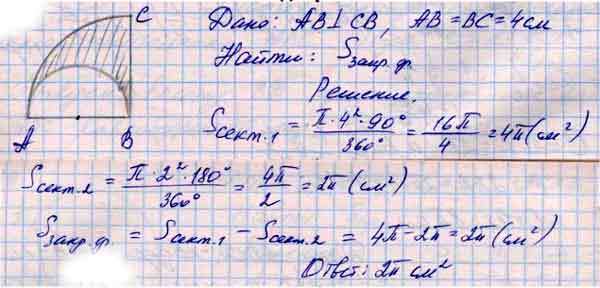 C
A
B
Дано: AB⊥CB, AB=BC=4см
Найти: Sзакр.ф.
Решение.
Sсект.1 = π·4²·90°/360° = 16π/4 = 4π(см²)
Sсект.2 = π·2²·180°/360° = 4π/2 = 2π(см²)
Sзакр.ф. = Sсект.1 - Sсект.2 = 4π-2π=2π(см²)
Ответ: 2π см²